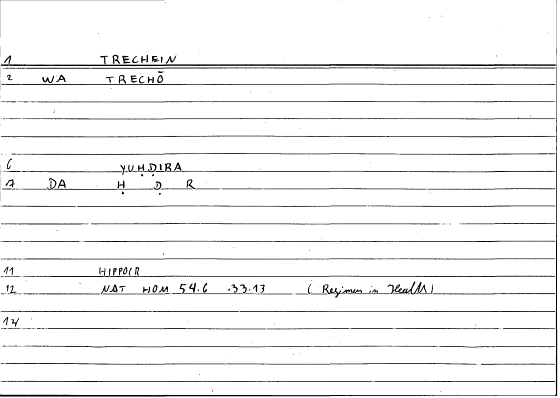 1 TRECHEIN
2 WA TRECHŌ
6 YUḤḌIRA
7 DA Ḥ Ḍ R
11 HIPPOCR
12 NAT HOM 54.6 .33.13 ( Regimen in Health)
14